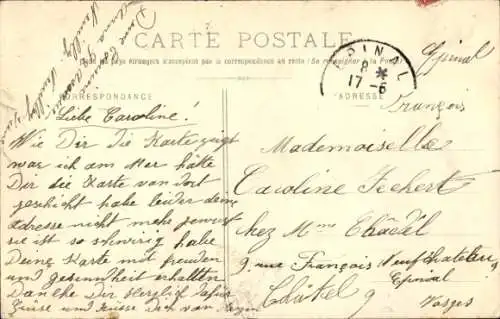 CARTE POSTALE
Tous les pays étrangers n'acceptent pas la correspondance au recto (Se renseigner à la Poste)
CORRESPONDANCE
ADRESSE
EPINAL
8 *
17-6
Epinal
Liebe Caroline!
Wie Dir die Karte zeigt
war ich am Mer hätte
Dir die Karte van dort
geschickt habe leider deine
adresse nicht mehr gewust
sie ist so schwirig habe
Deine Karte mit freuden
und gesundheit erhallten
Danche Dir Herzlich dafür
Grüse und Küsse Dich van
François
Mademoiselle
Caroline Fechert
chez Mme Chatel
9 rue François Neufchateau
Epinal
Châtel 9
Vosges